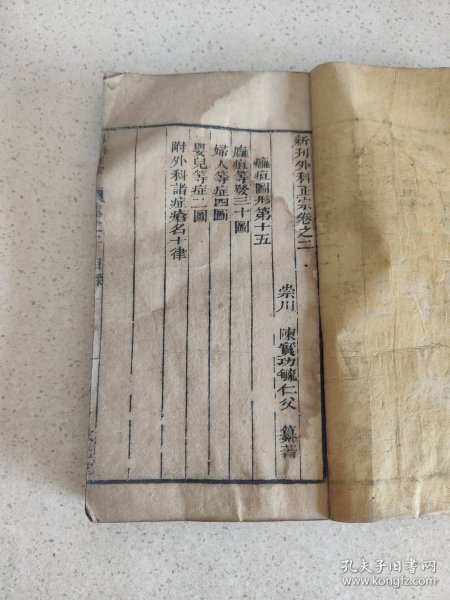 新刊外科正宗卷之二
崇川 陳實功毓仁父 纂著
癰疽圖形第十五
癰疽等發三十圖
婦人等症四圖
嬰兒等症二圖
附外科諸症瘡名十律
孔夫子旧书网
www.kongfz.com